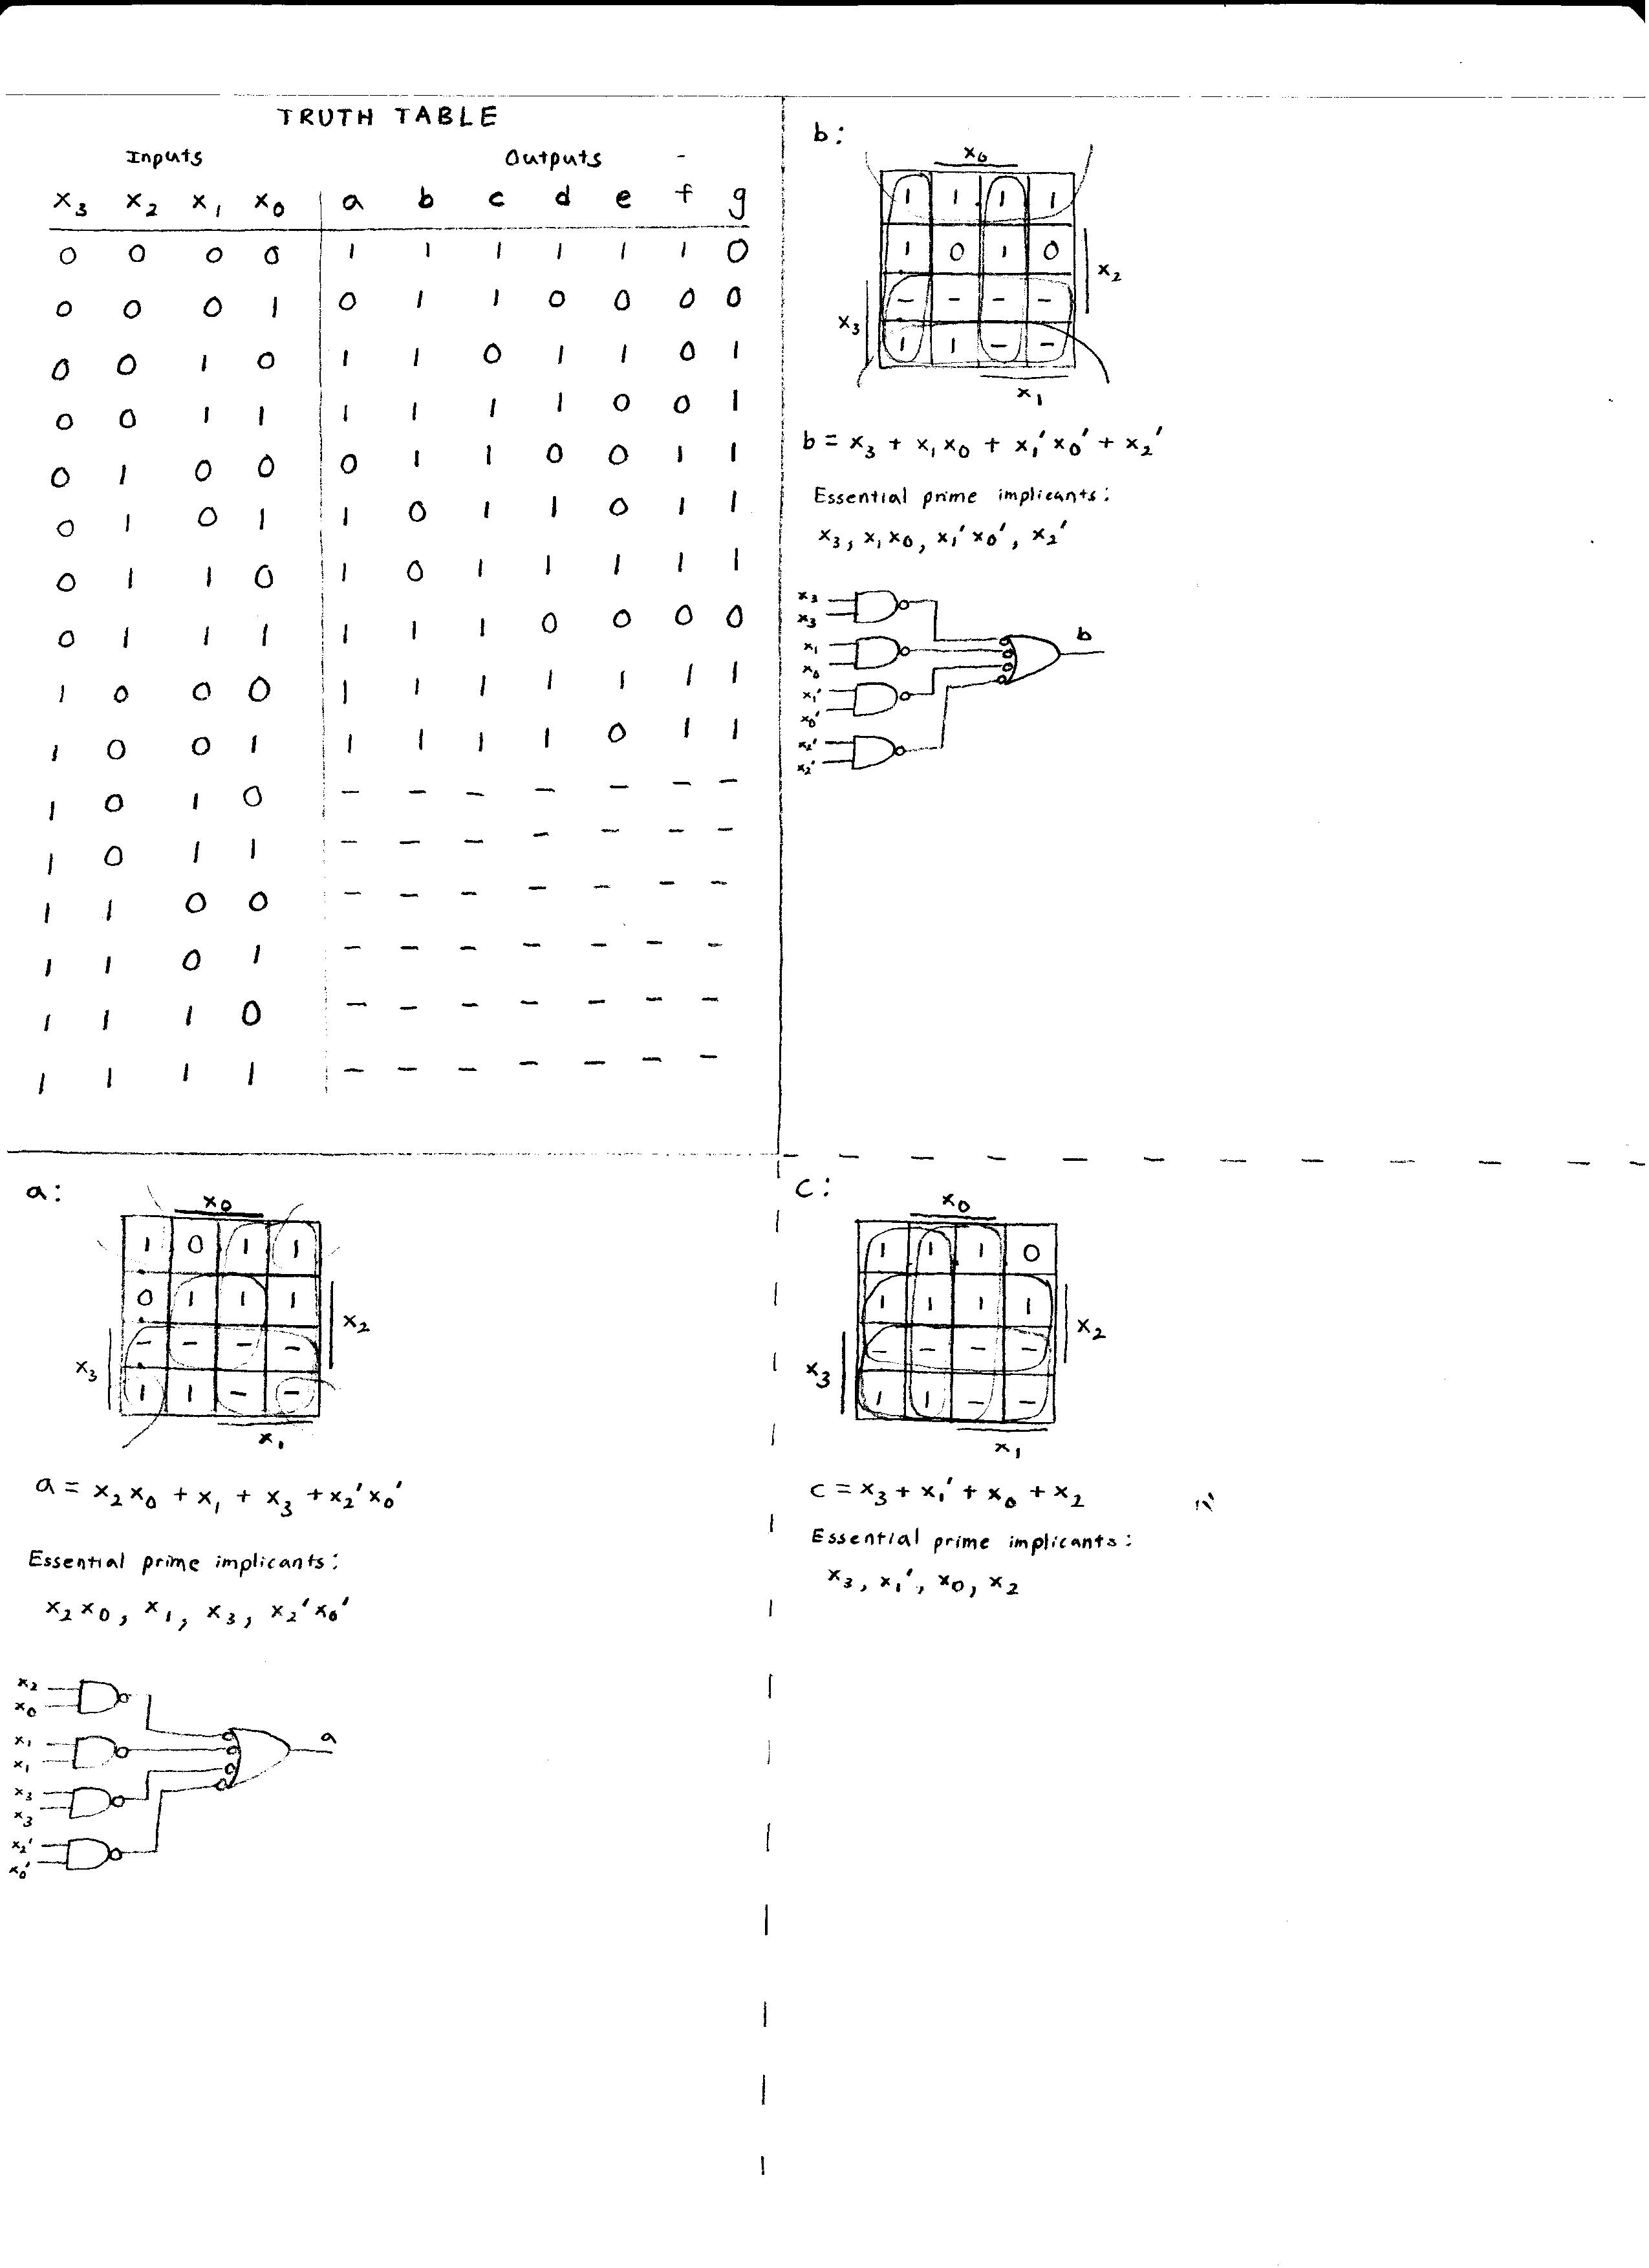 TRUTH TABLE
Inputs Outputs
x₃ x₂ x₁ x₀ a b c d e f g
0 0 0 0 1 1 1 1 1 1 0
0 0 0 1 0 1 1 0 0 0 0
0 0 1 0 1 1 0 1 1 0 1
0 0 1 1 1 1 1 1 0 0 1
0 1 0 0 0 1 1 0 0 1 1
0 1 0 1 1 0 1 1 0 1 1
0 1 1 0 1 0 1 1 1 1 1
0 1 1 1 1 1 1 0 0 0 0
1 0 0 0 1 1 1 1 1 1 1
1 0 0 1 1 1 1 1 0 1 1
1 0 1 0 - - - - - - -
1 0 1 1 - - - - - - -
1 1 0 0 - - - - - - -
1 1 0 1 - - - - - - -
1 1 1 0 - - - - - - -
1 1 1 1 - - - - - - -
b:
x₀
1 1 1 1
1 0 1 0
x₂
- - - -
x₃
1 1 - -
x₁
b = x₃ + x₁x₀ + x₁'x₀' + x₂'
Essential prime implicants:
x₃, x₁x₀, x₁'x₀', x₂'
x₃
x₃
x₁
x₀
x₁'
x₀'
x₂'
x₂'
b
a:
x₀
1 0 1 1
0 1 1 1
x₂
- - - -
x₃
1 1 - -
x₁
a = x₂x₀ + x₁ + x₃ + x₂'x₀'
Essential prime implicants:
x₂x₀, x₁, x₃, x₂'x₀'
x₂
x₀
x₁
x₁
x₃
x₃
x₂'
x₀'
a
c:
x₀
1 1 1 0
1 1 1 1
x₂
- - - -
x₃
1 1 - -
x₁
c = x₃ + x₁' + x₀ + x₂
Essential prime implicants:
x₃, x₁', x₀, x₂